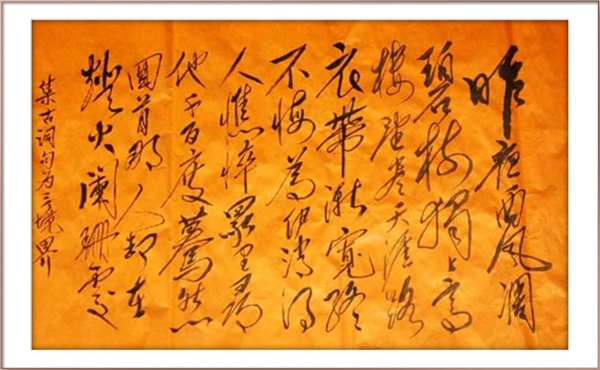 昨夜西风凋
碧树独上高
楼望尽天涯路
衣带渐宽终
不悔为伊消得
人憔悴众里寻
他千百度蓦然
回首那人却在
灯火阑珊处
集古词句为三境界